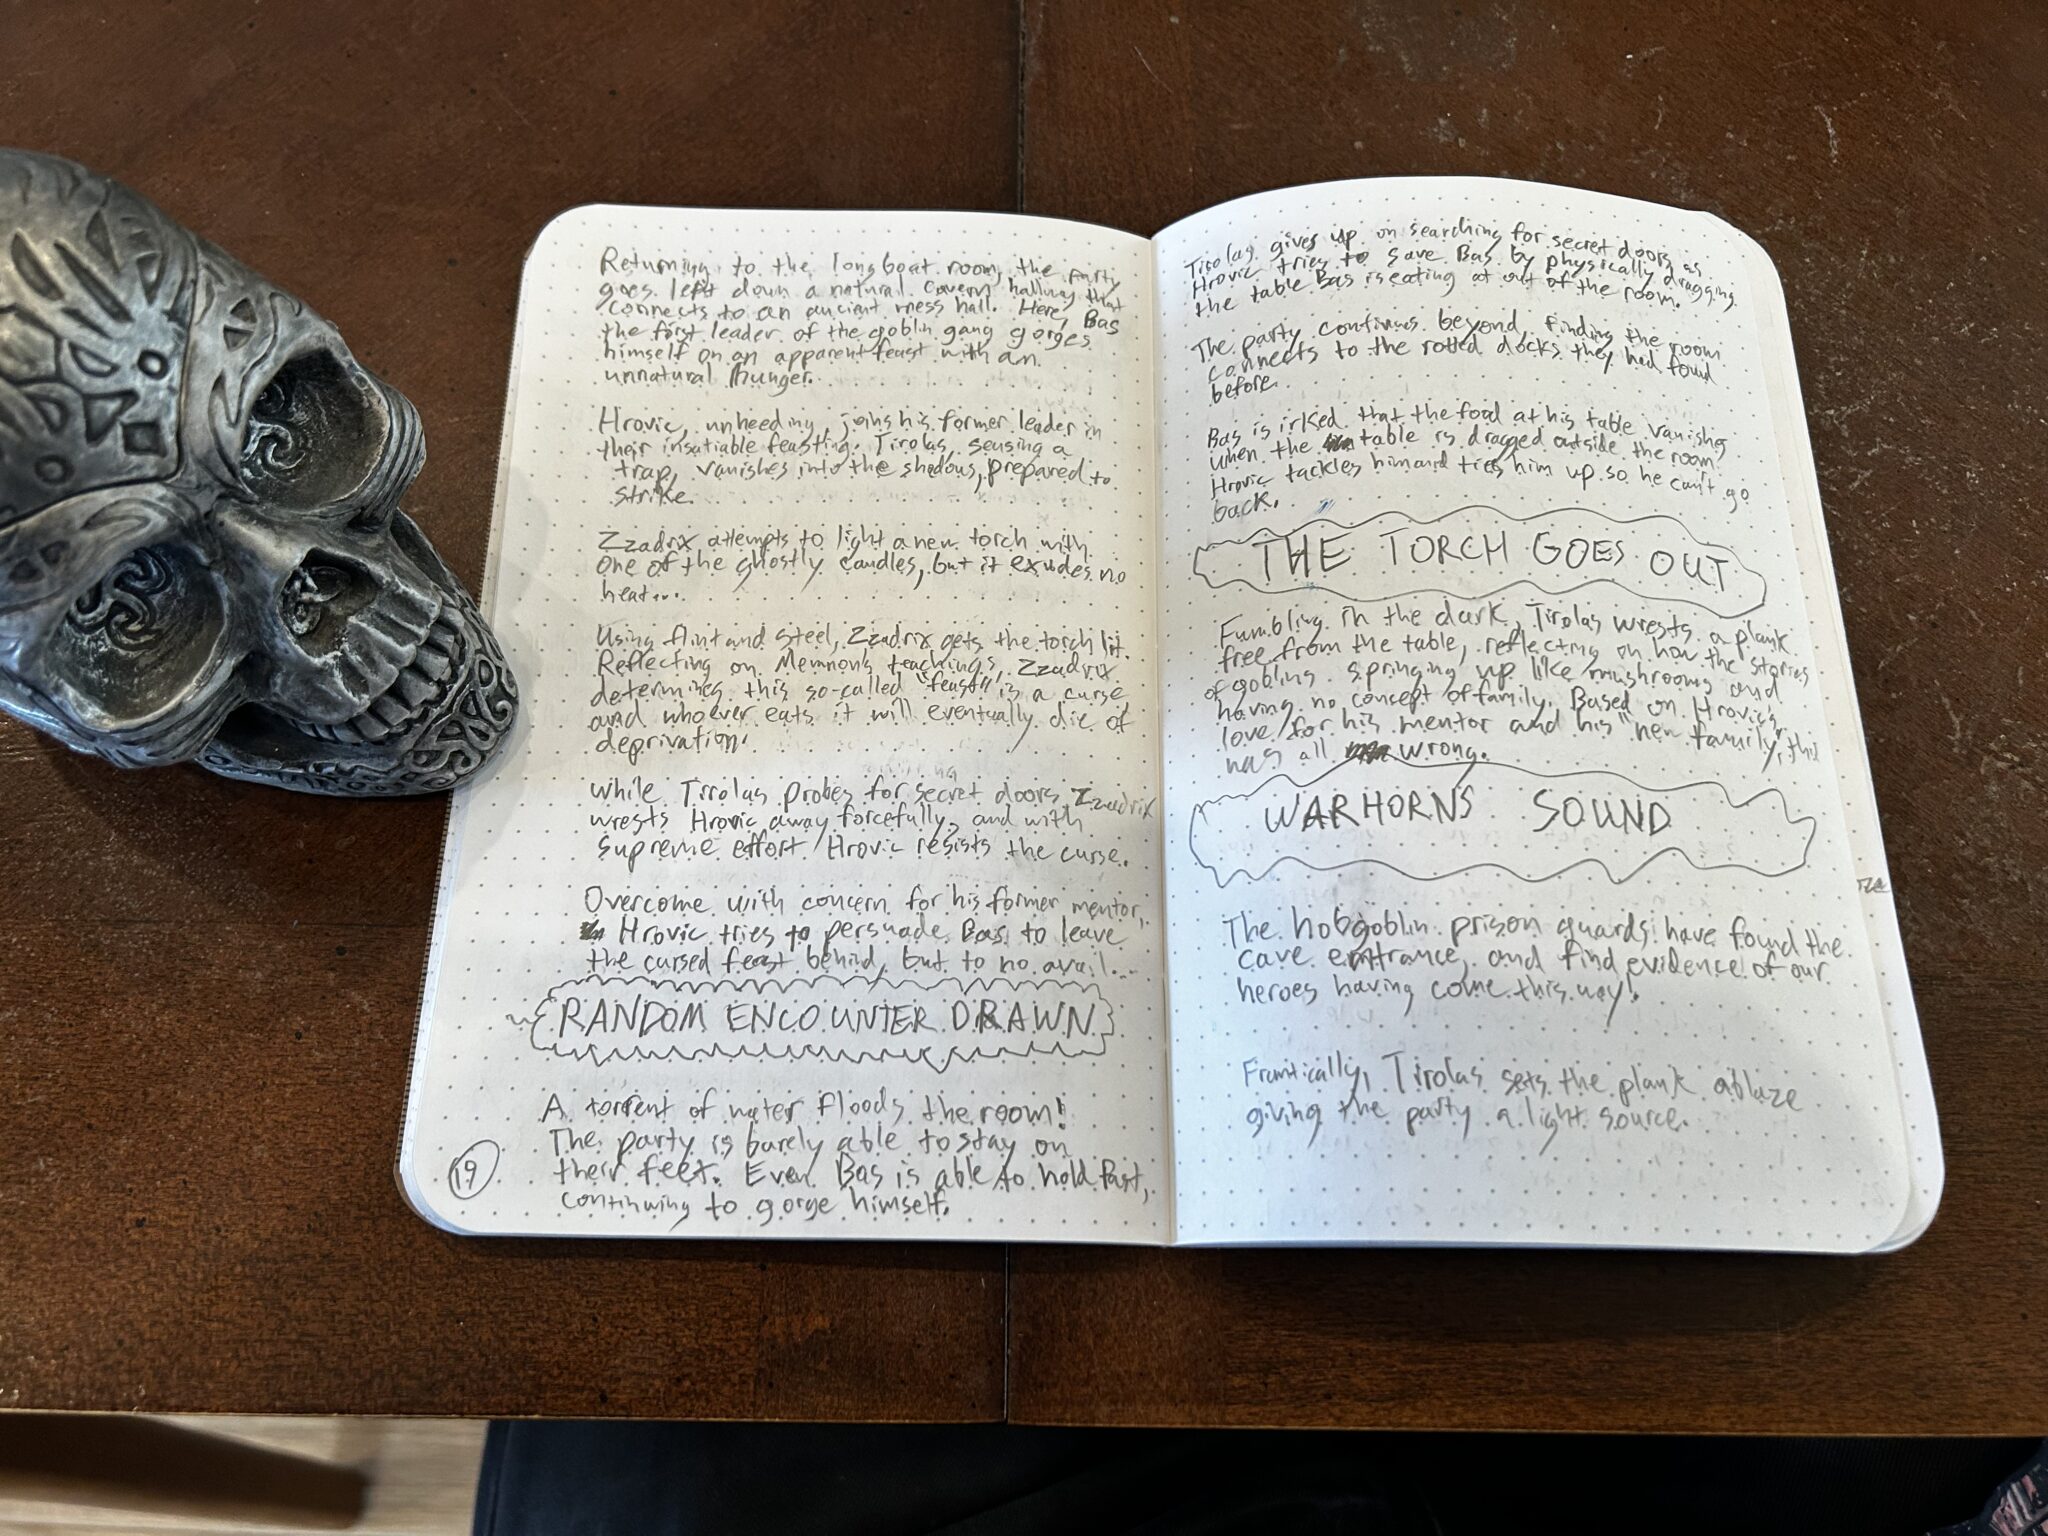 Returning to the longboat room, the party
goes left down a natural cavern hallway that
connects to an ancient mess hall. Here, Bas
the first leader of the goblin gang gorges
himself on an apparent feast with an
unnatural hunger.
Hrovic, unheeding, joins his former leader in
their insatiable feasting. Tirolas, sensing a
trap, vanishes into the shadows, prepared to
strike.
Zzadrix attempts to light a new torch with
one of the ghostly candles, but it exudes no
heat...
Using flint and steel, Zzadrix gets the torch lit.
Reflecting on Memnon's teachings, Zzadrix
determines this so-called "feast" is a curse
and whoever eats it will eventually die of
deprivation.
While Tirolas probes for secret doors, Zzadrix
wrests Hrovic away forcefully, and with
supreme effort Hrovic resists the curse.
Overcome with concern for his former mentor,
Hrovic tries to persuade Bas to leave
the cursed feast behind, but to no avail...
RANDOM ENCOUNTER DRAWN
A torrent of water floods the room!
The party is barely able to stay on
their feet. Even Bas is able to hold fast,
continuing to gorge himself.
19
Tirolas gives up on searching for secret doors as
Hrovic tries to save Bas by physically dragging
the table Bas is eating at out of the room.
The party continues beyond, finding the room
connects to the rotted docks they had found
before.
Bas is irked that the food at his table vanishes
when the table is dragged outside the room.
Hrovic tackles him and ties him up so he can't go
back.
THE TORCH GOES OUT
Fumbling in the dark, Tirolas wrests a plank
free from the table, reflecting on how the stories
of goblins springing up like mushrooms and
having no concept of family. Based on Hrovic's
love for his mentor and his "new family", this
was all wrong.
WARHORNS SOUND
The hobgoblin prison guards have found the
cave entrance, and find evidence of our
heroes having come this way!
Frantically, Tirolas sets the plank ablaze
giving the party a light source.